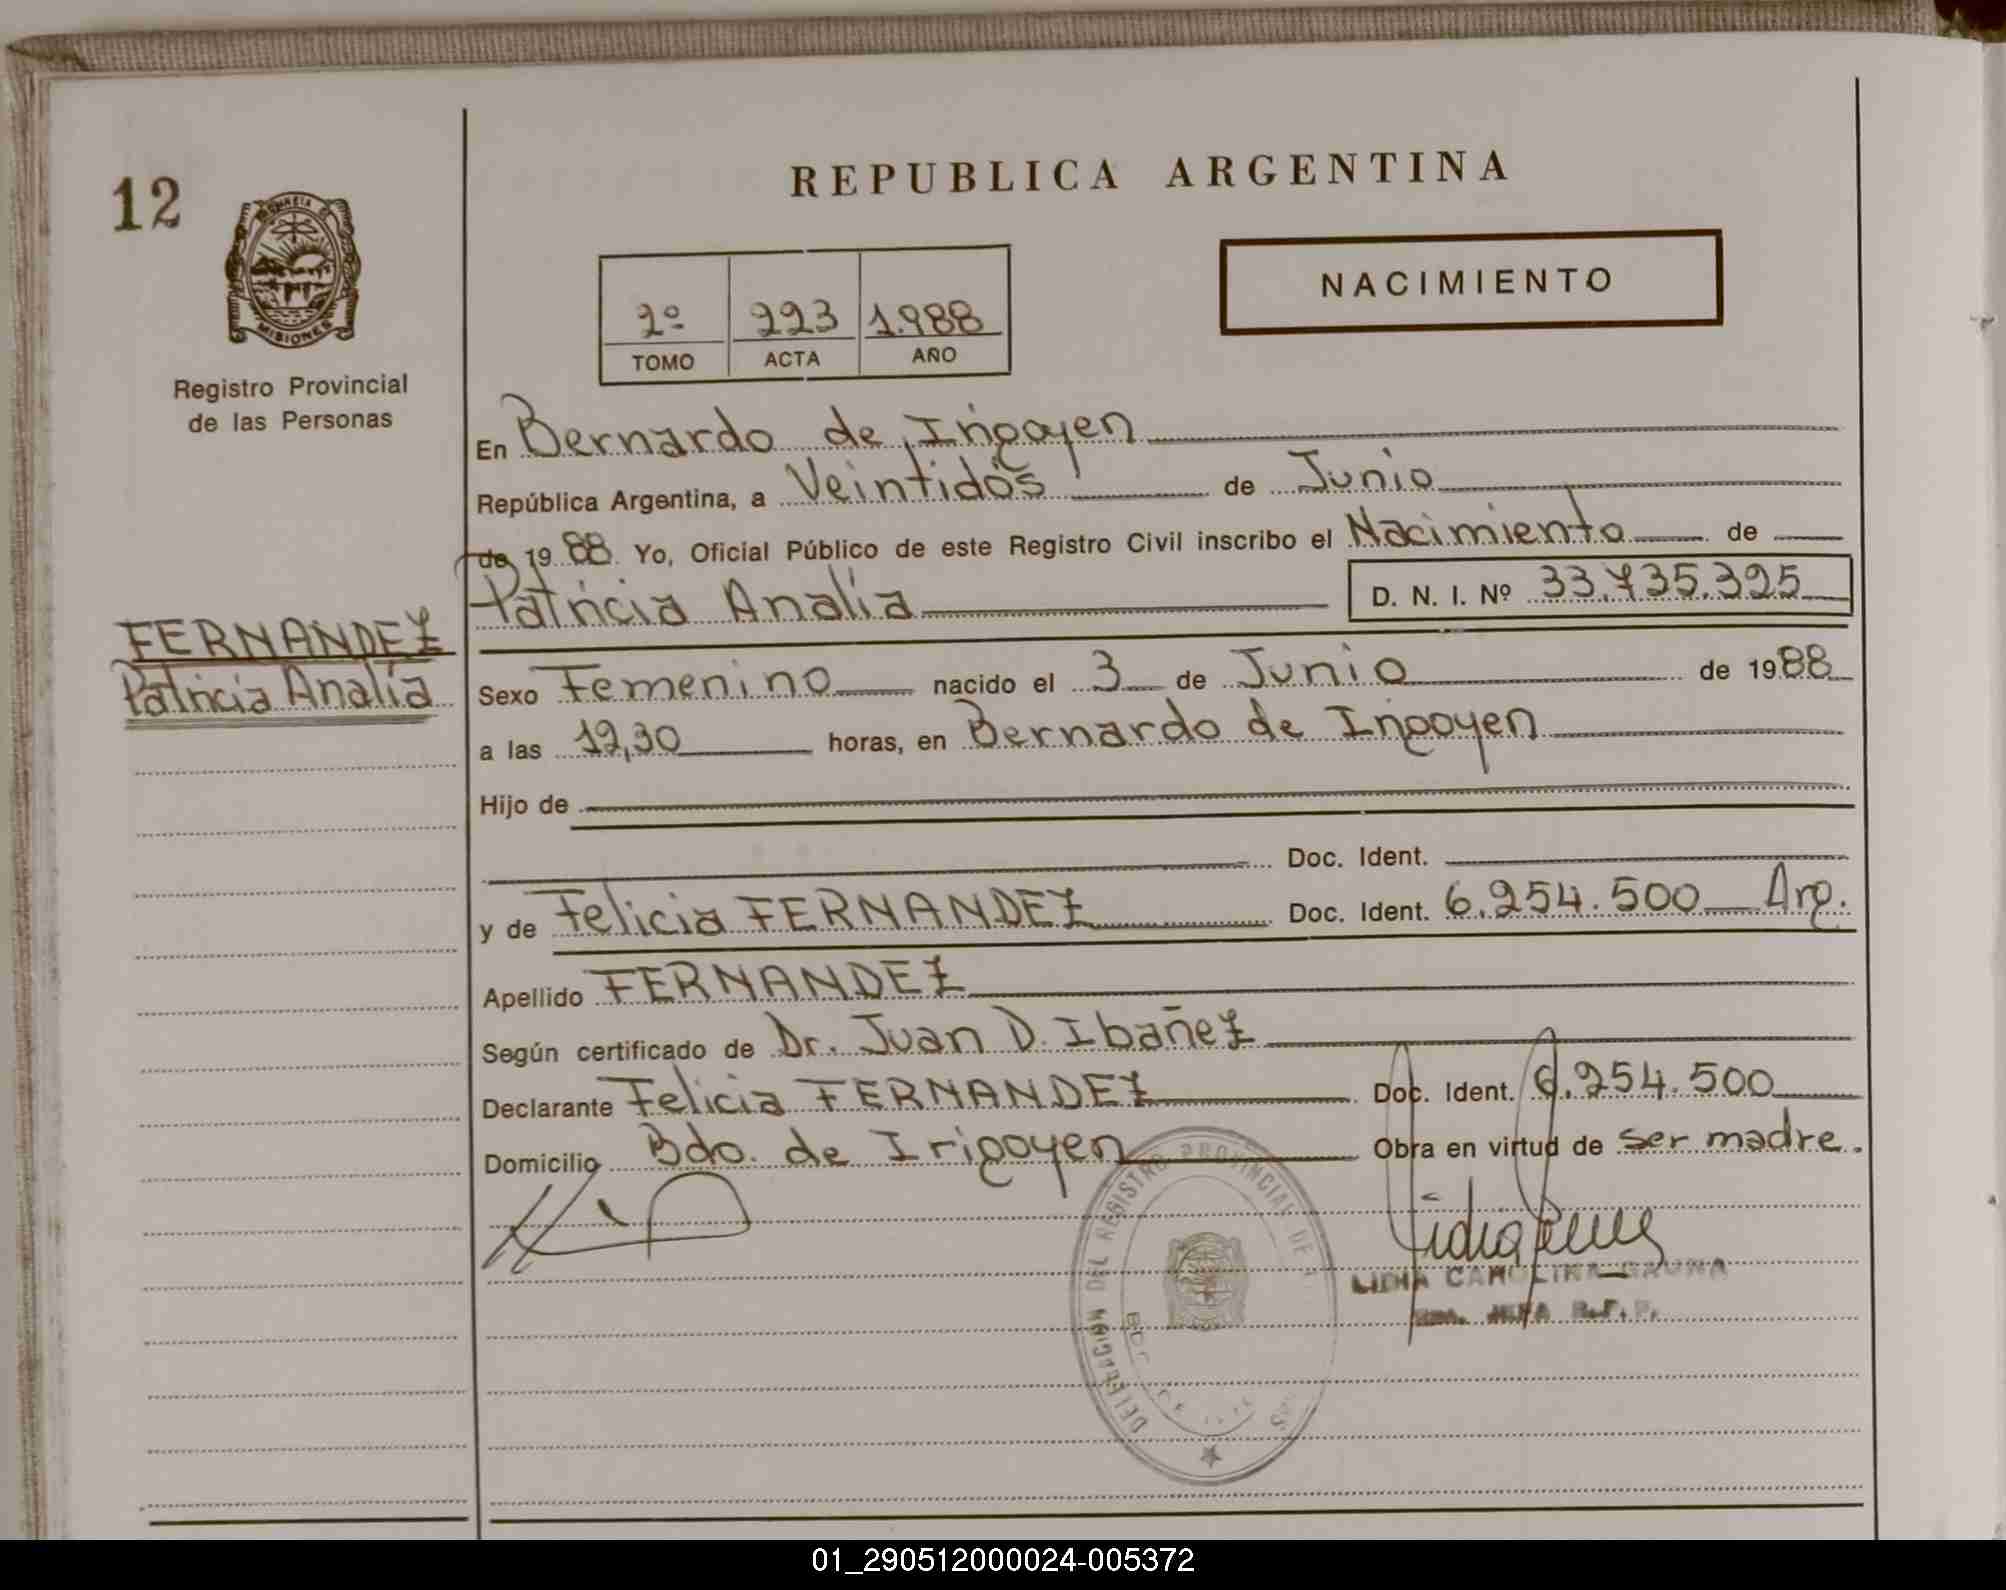 12
PROVINCIA DE
MISIONES
Registro Provincial
de las Personas
FERNANDEZ
Patricia Analía
REPUBLICA ARGENTINA
NACIMIENTO
2º 223 1.988
TOMO ACTA AÑO
En Bernardo de Irigoyen
República Argentina, a Veintidós de Junio
de 1988. Yo, Oficial Público de este Registro Civil inscribo el Nacimiento de
Patricia Analía D. N. I. Nº 33.735.325
Sexo Femenino nacido el 3 de Junio de 1988
a las 12,30 horas, en Bernardo de Irigoyen
Hijo de
Doc. Ident.
y de Felicia FERNANDEZ Doc. Ident. 6.254.500 Arg.
Apellido FERNANDEZ
Según certificado de Dr. Juan D. Ibañez
Declarante Felicia FERNANDEZ Doc. Ident. 6.254.500
Domicilio Bdo. de Irigoyen Obra en virtud de ser madre.
DELEGACION DEL REGISTRO PROVINCIAL DE
LIDIA CAROLINA GAUNA
JEFA R.P.P.
01_290512000024-005372